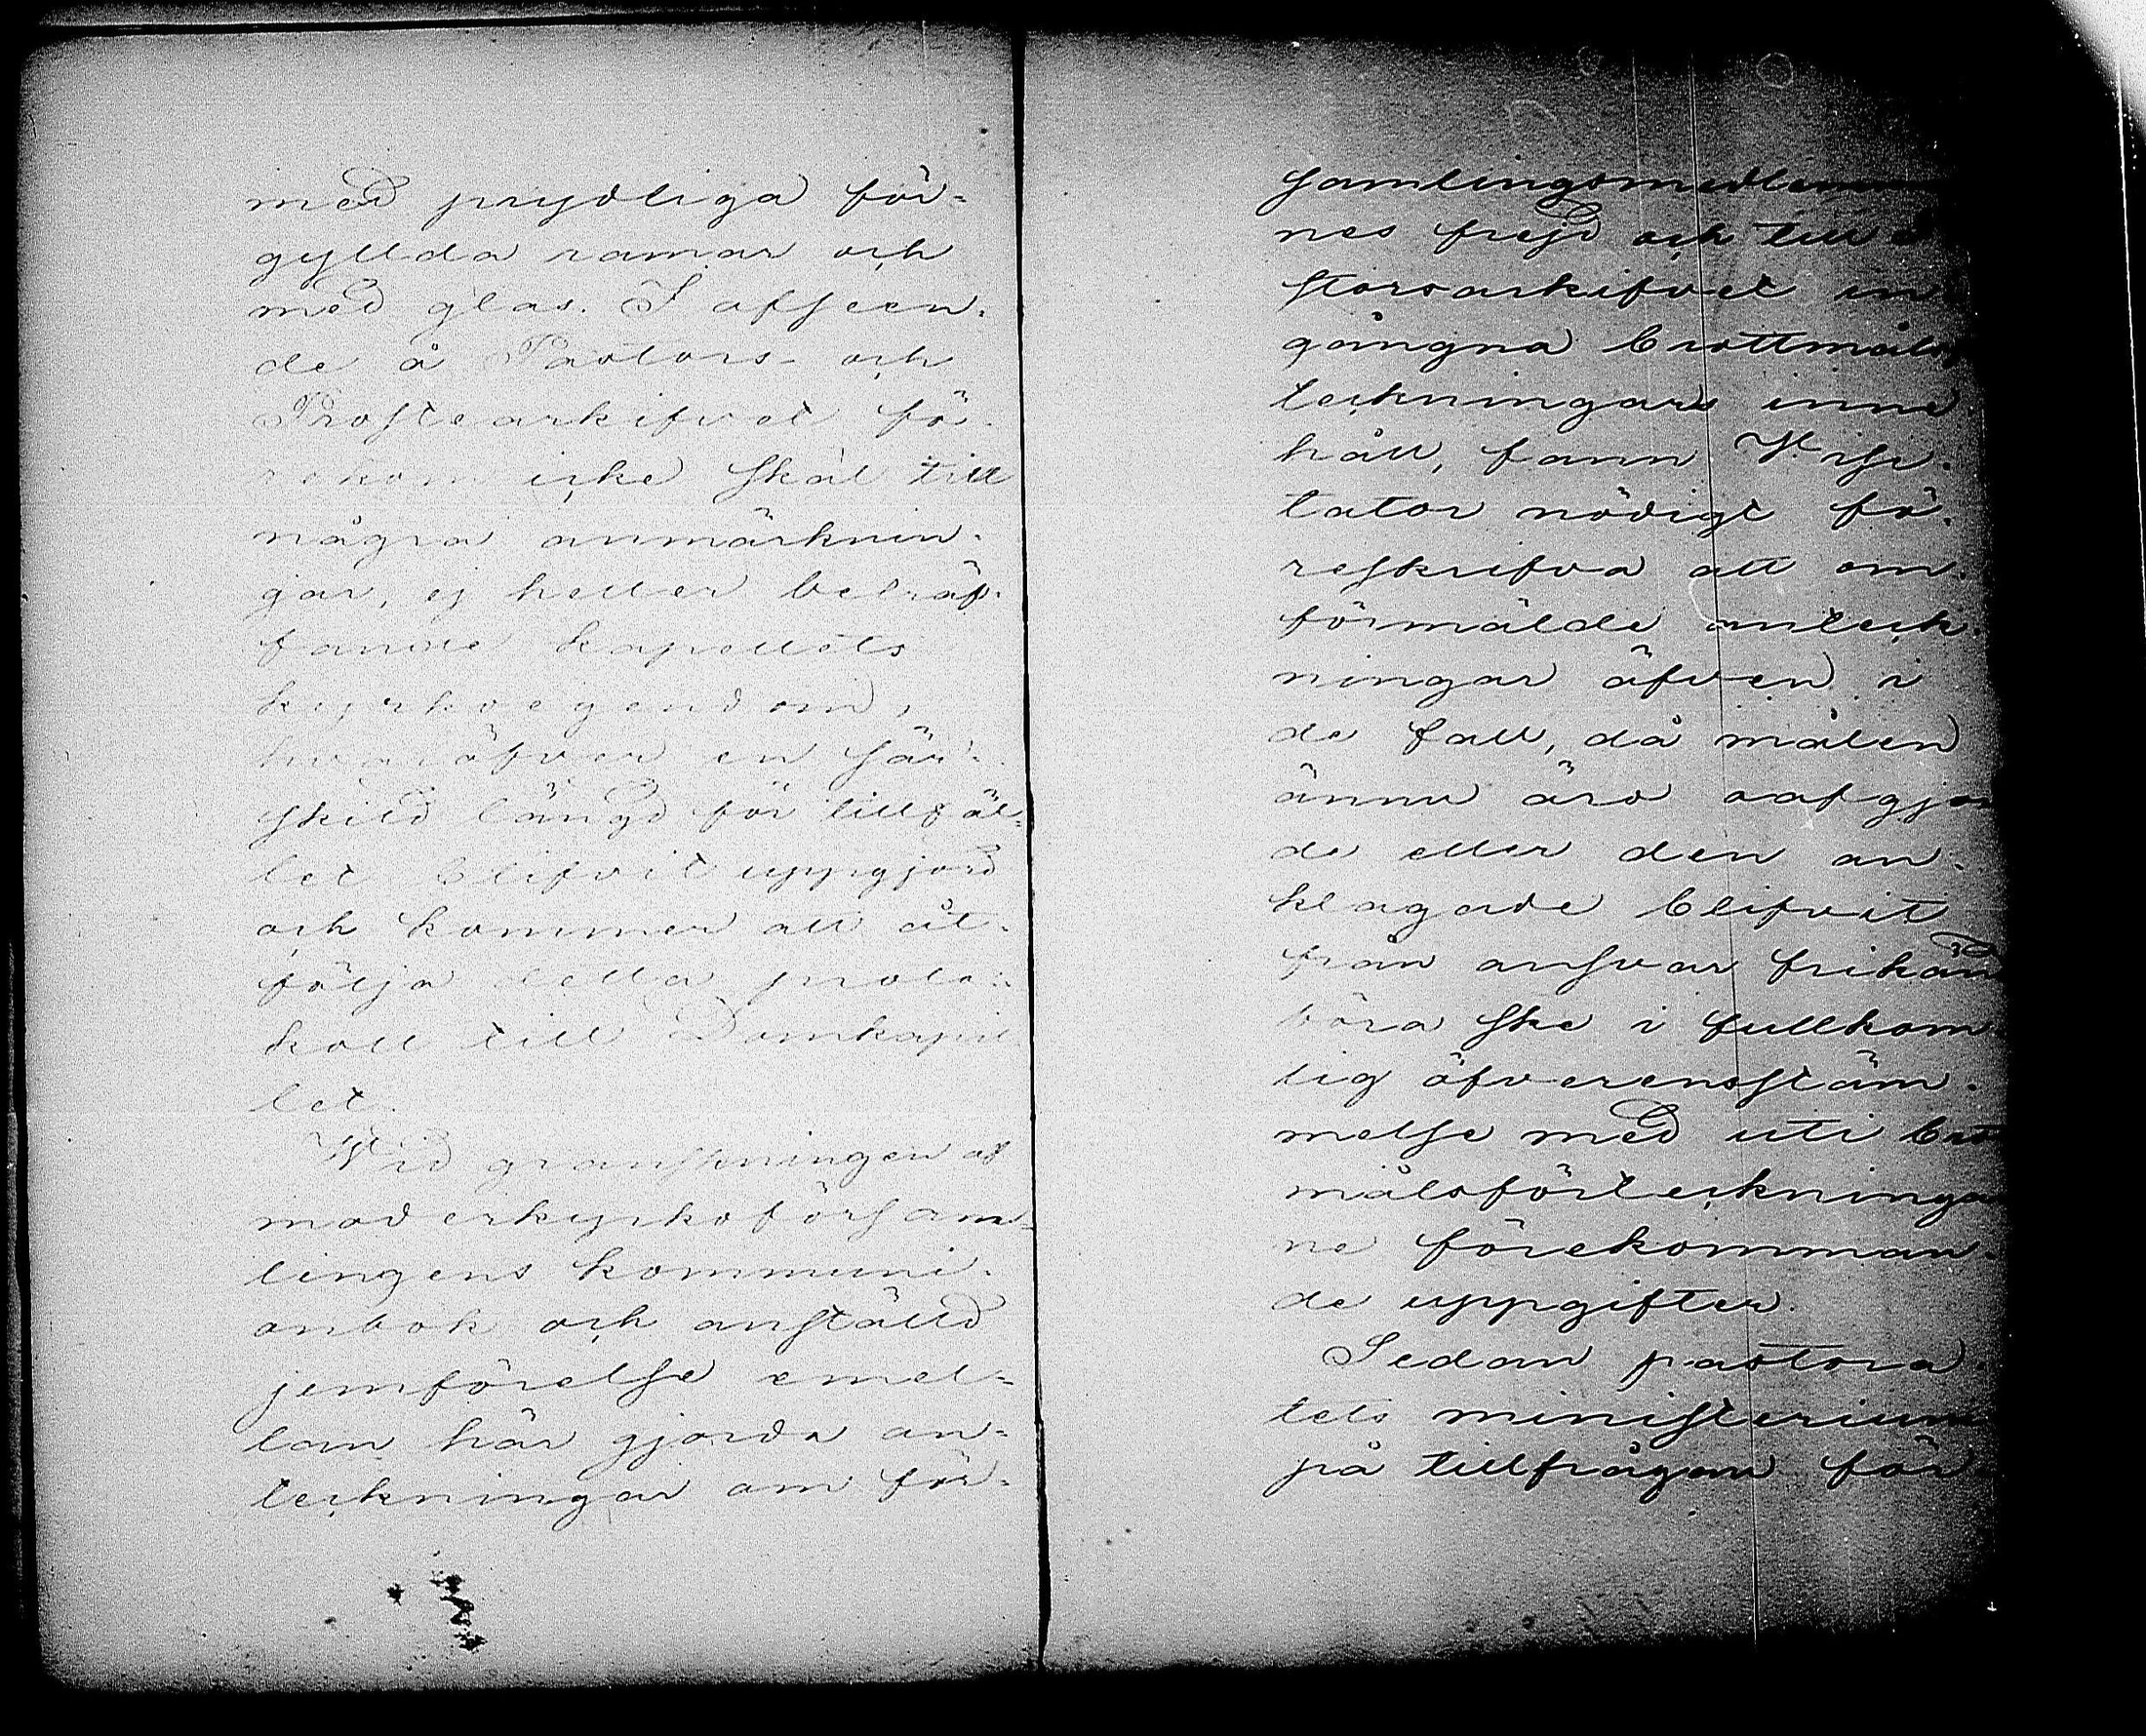 med prydliga för-
gyllda ramar och
med glas. I afseen-
de å Pastors- och
Prostearkifvet fö-
rekom icke skäl till
några anmärknin-
gar, ej heller beträf-
fande kapellets
kyrkoegendom,
hvaröfver en sär-
skild längd för tillfäl-
let blifvit uppgjord
och kommer att åt-
följa detta proto-
koll till Domkapit-
let.
Wid granskningen af
moderkyrkoförsam-
lingens kommuni-
onbok och anställd
jemförelse emel-
lan här gjorda an-
teckningar om för-
samlingsmedlemmar
nes frejd och till
storsarkifvet in
gångna brottmåls
teckningars inne
håll, fann Visi-
tator nödigt fö-
reskrifva att om-
förmälde anteck-
ningar äfven i
de fall, då målen
ännu äro oafgjor
de eller den an-
klagade blifvit
från ansvar frikänd
böra ske i fullkom
lig öfverensstäm-
melse med uti brott
målsförteckningar
ne förekomman-
de uppgifter.
Sedan pastora
tets ministerium
på tillfrågan för